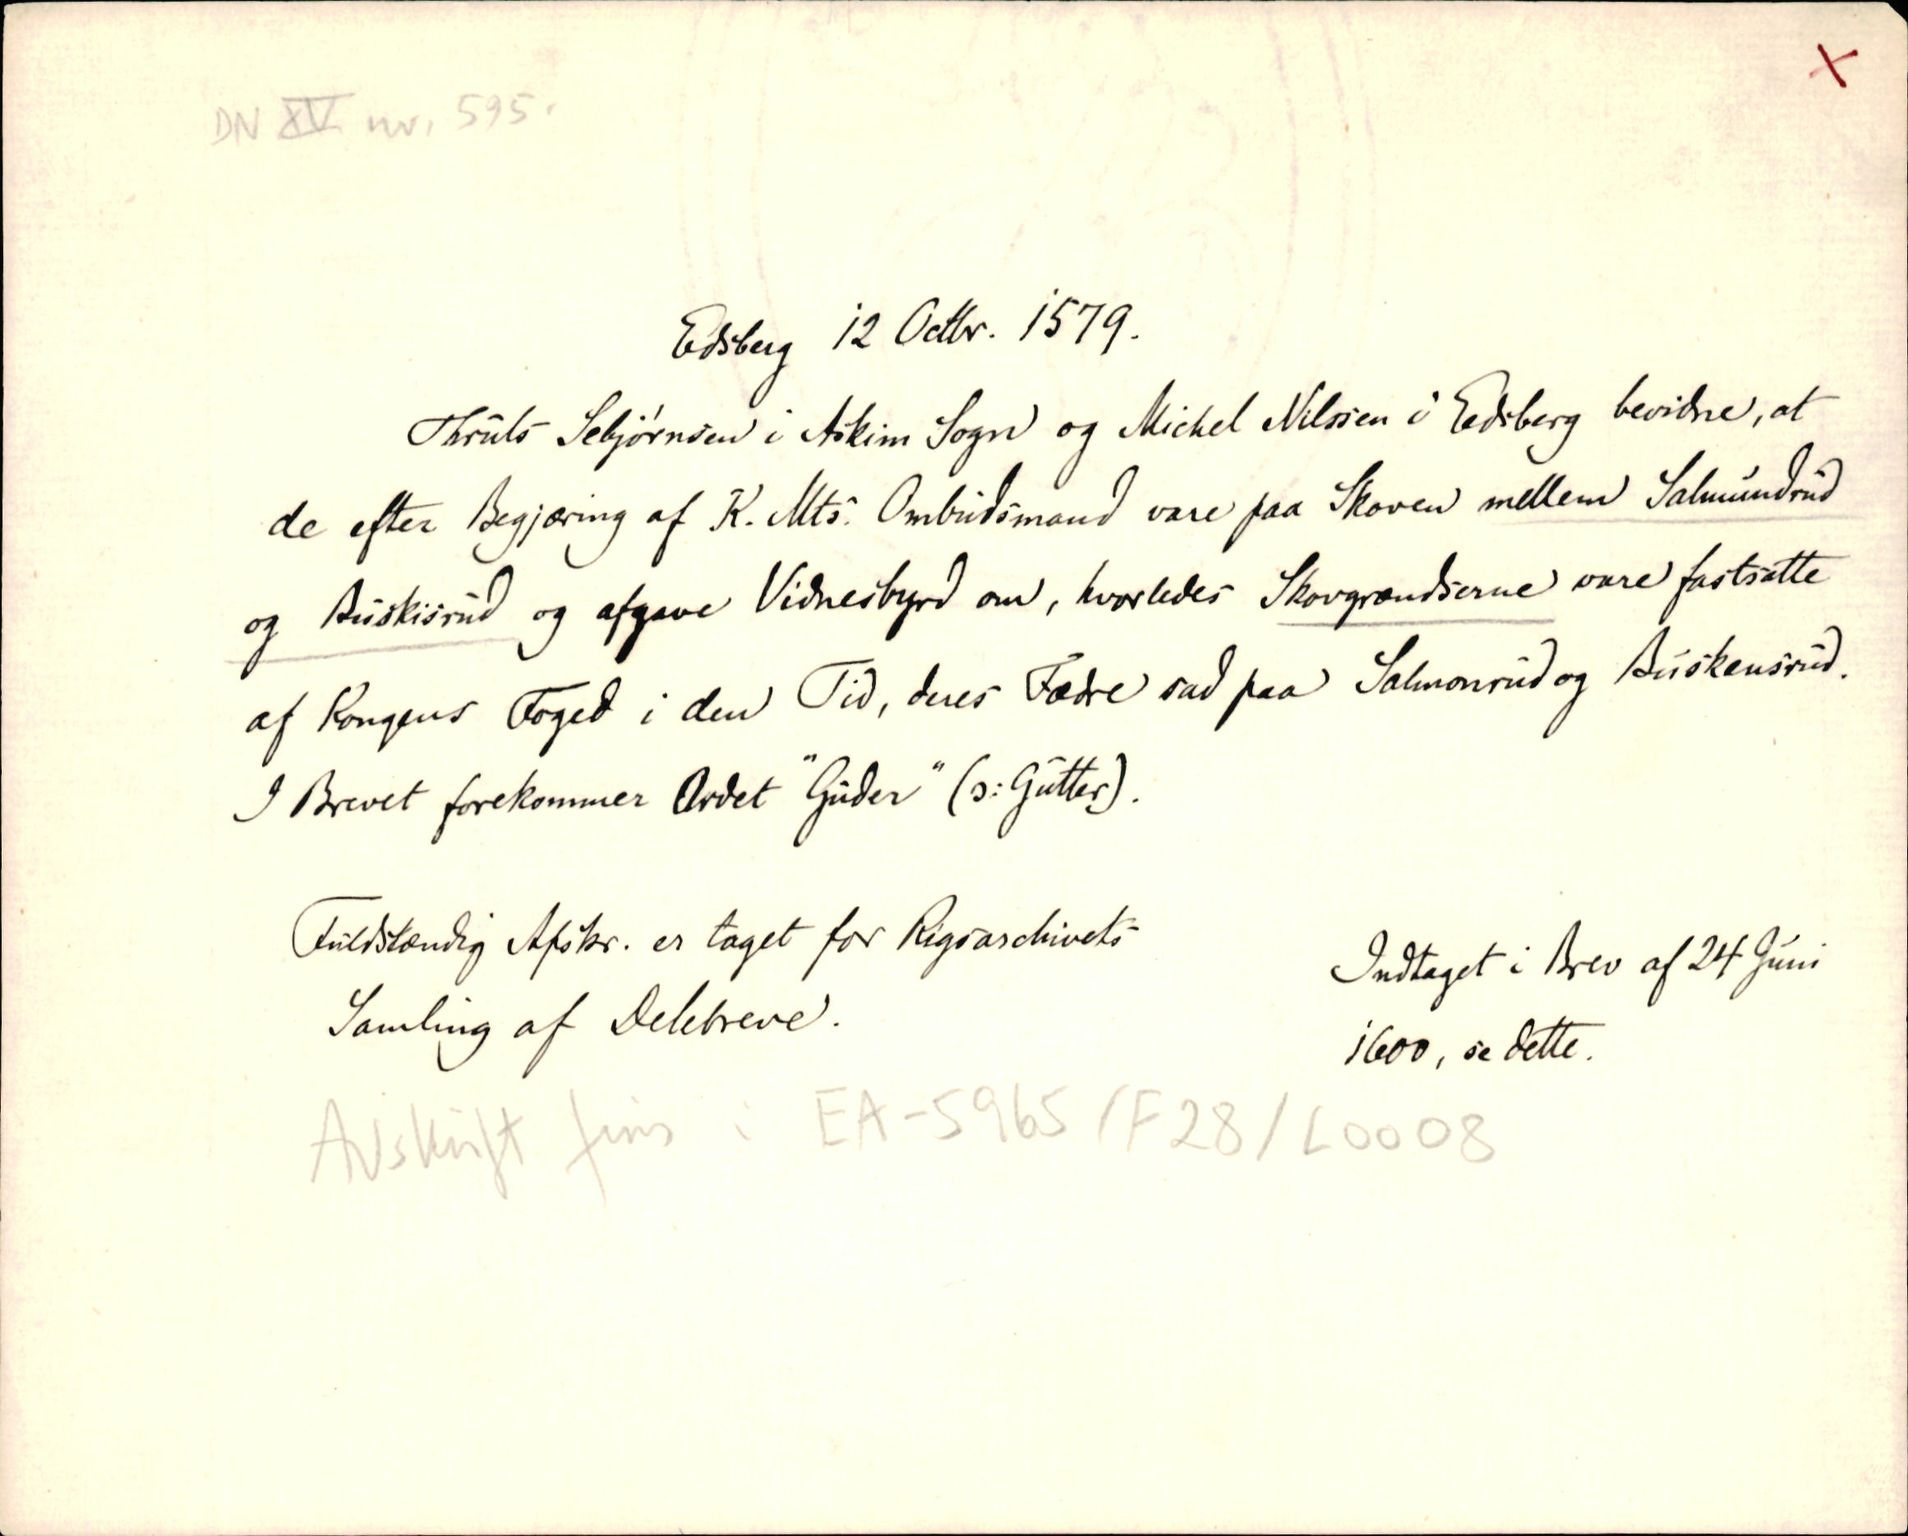 DN XV nr. 595.
X
Edsberg 12 Octbr. 1579.
Thruls Sebjørnsen i Askim Sogn og Michel Nilssen i Edsberg bevidne, at
de efter Begjæring af K. Mts. Ombudsmand vare paa Skoven mellem Salmundrud
og Buskisrud og afgave Vidnesbyrd om, hvorledes Skovgrændserne vare fastsatte
af Kongens Foged i den Tid, deres Fædre sad paa Salmonrud og Buskensrud.
I Brevet forekommer Ordet "Guder" (ɔ: Gutter).
Fuldstændig Afskr. er taget for Rigsarchivets
Samling af Delebreve.
Indtaget i Brev af 24 Juni
1600, se dette.
Avskrift fins i EA-5965/F28/L0008